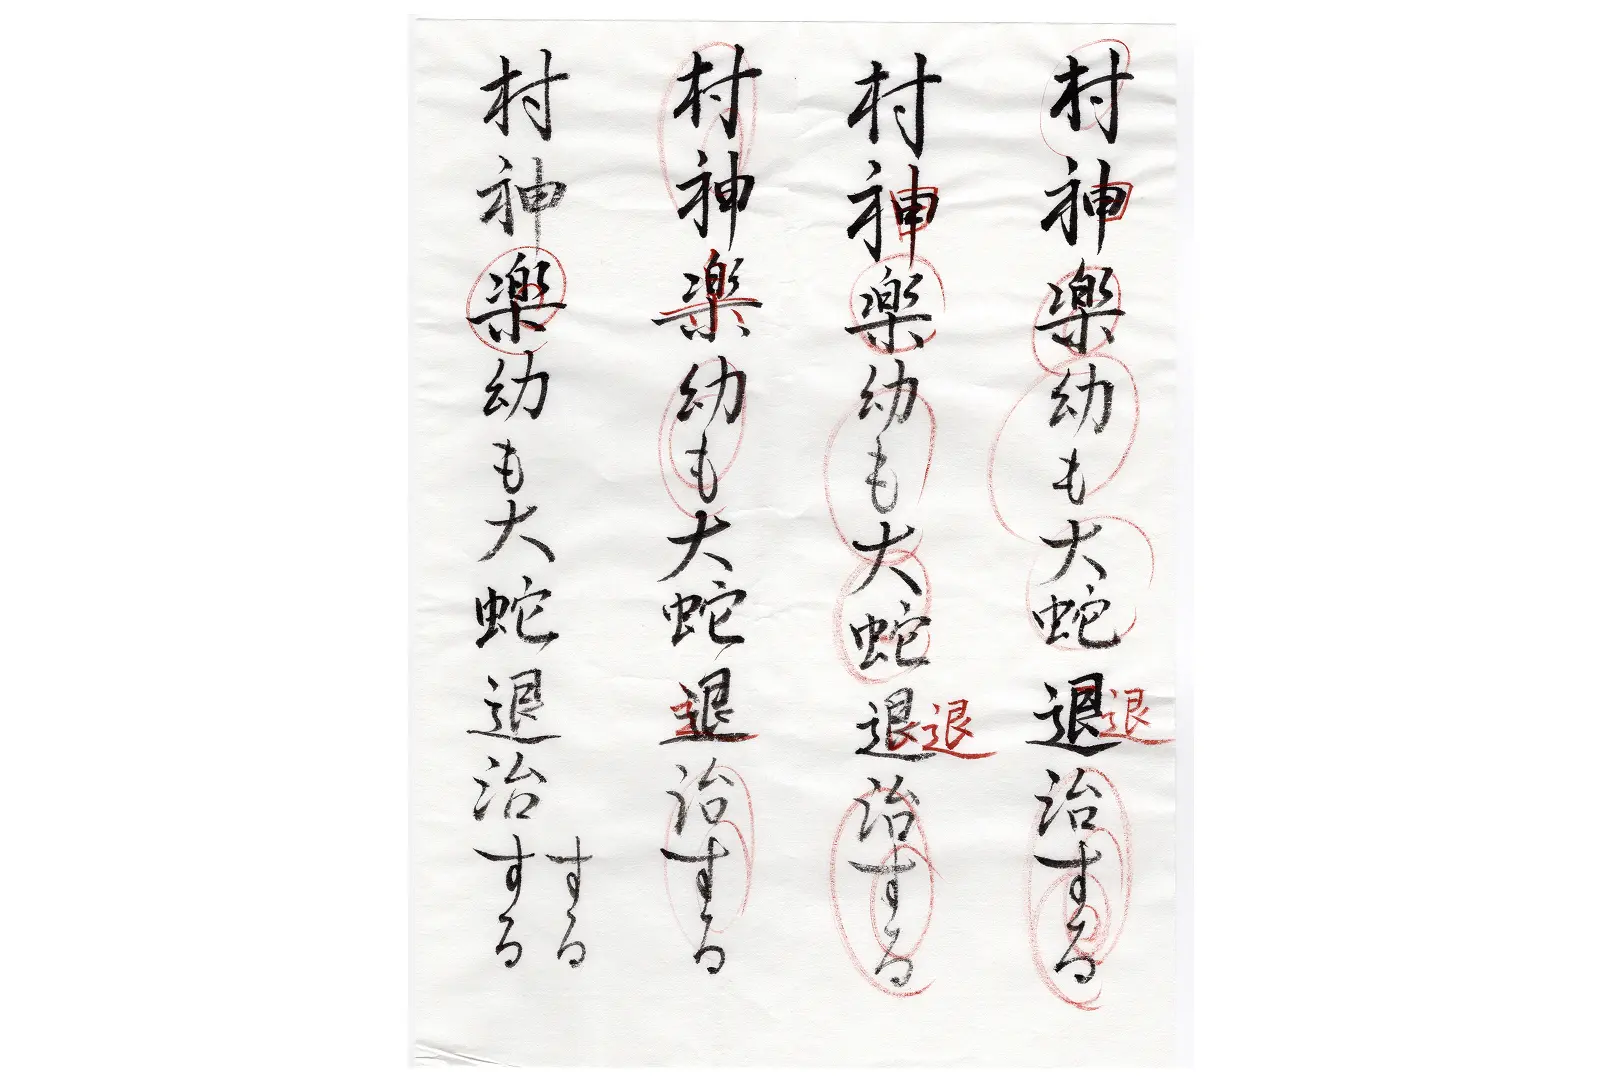 村神楽幼も大蛇退退治する
村神楽幼も大蛇退退治する
村神楽幼も大蛇退治する
村神楽幼も大蛇退治する
する